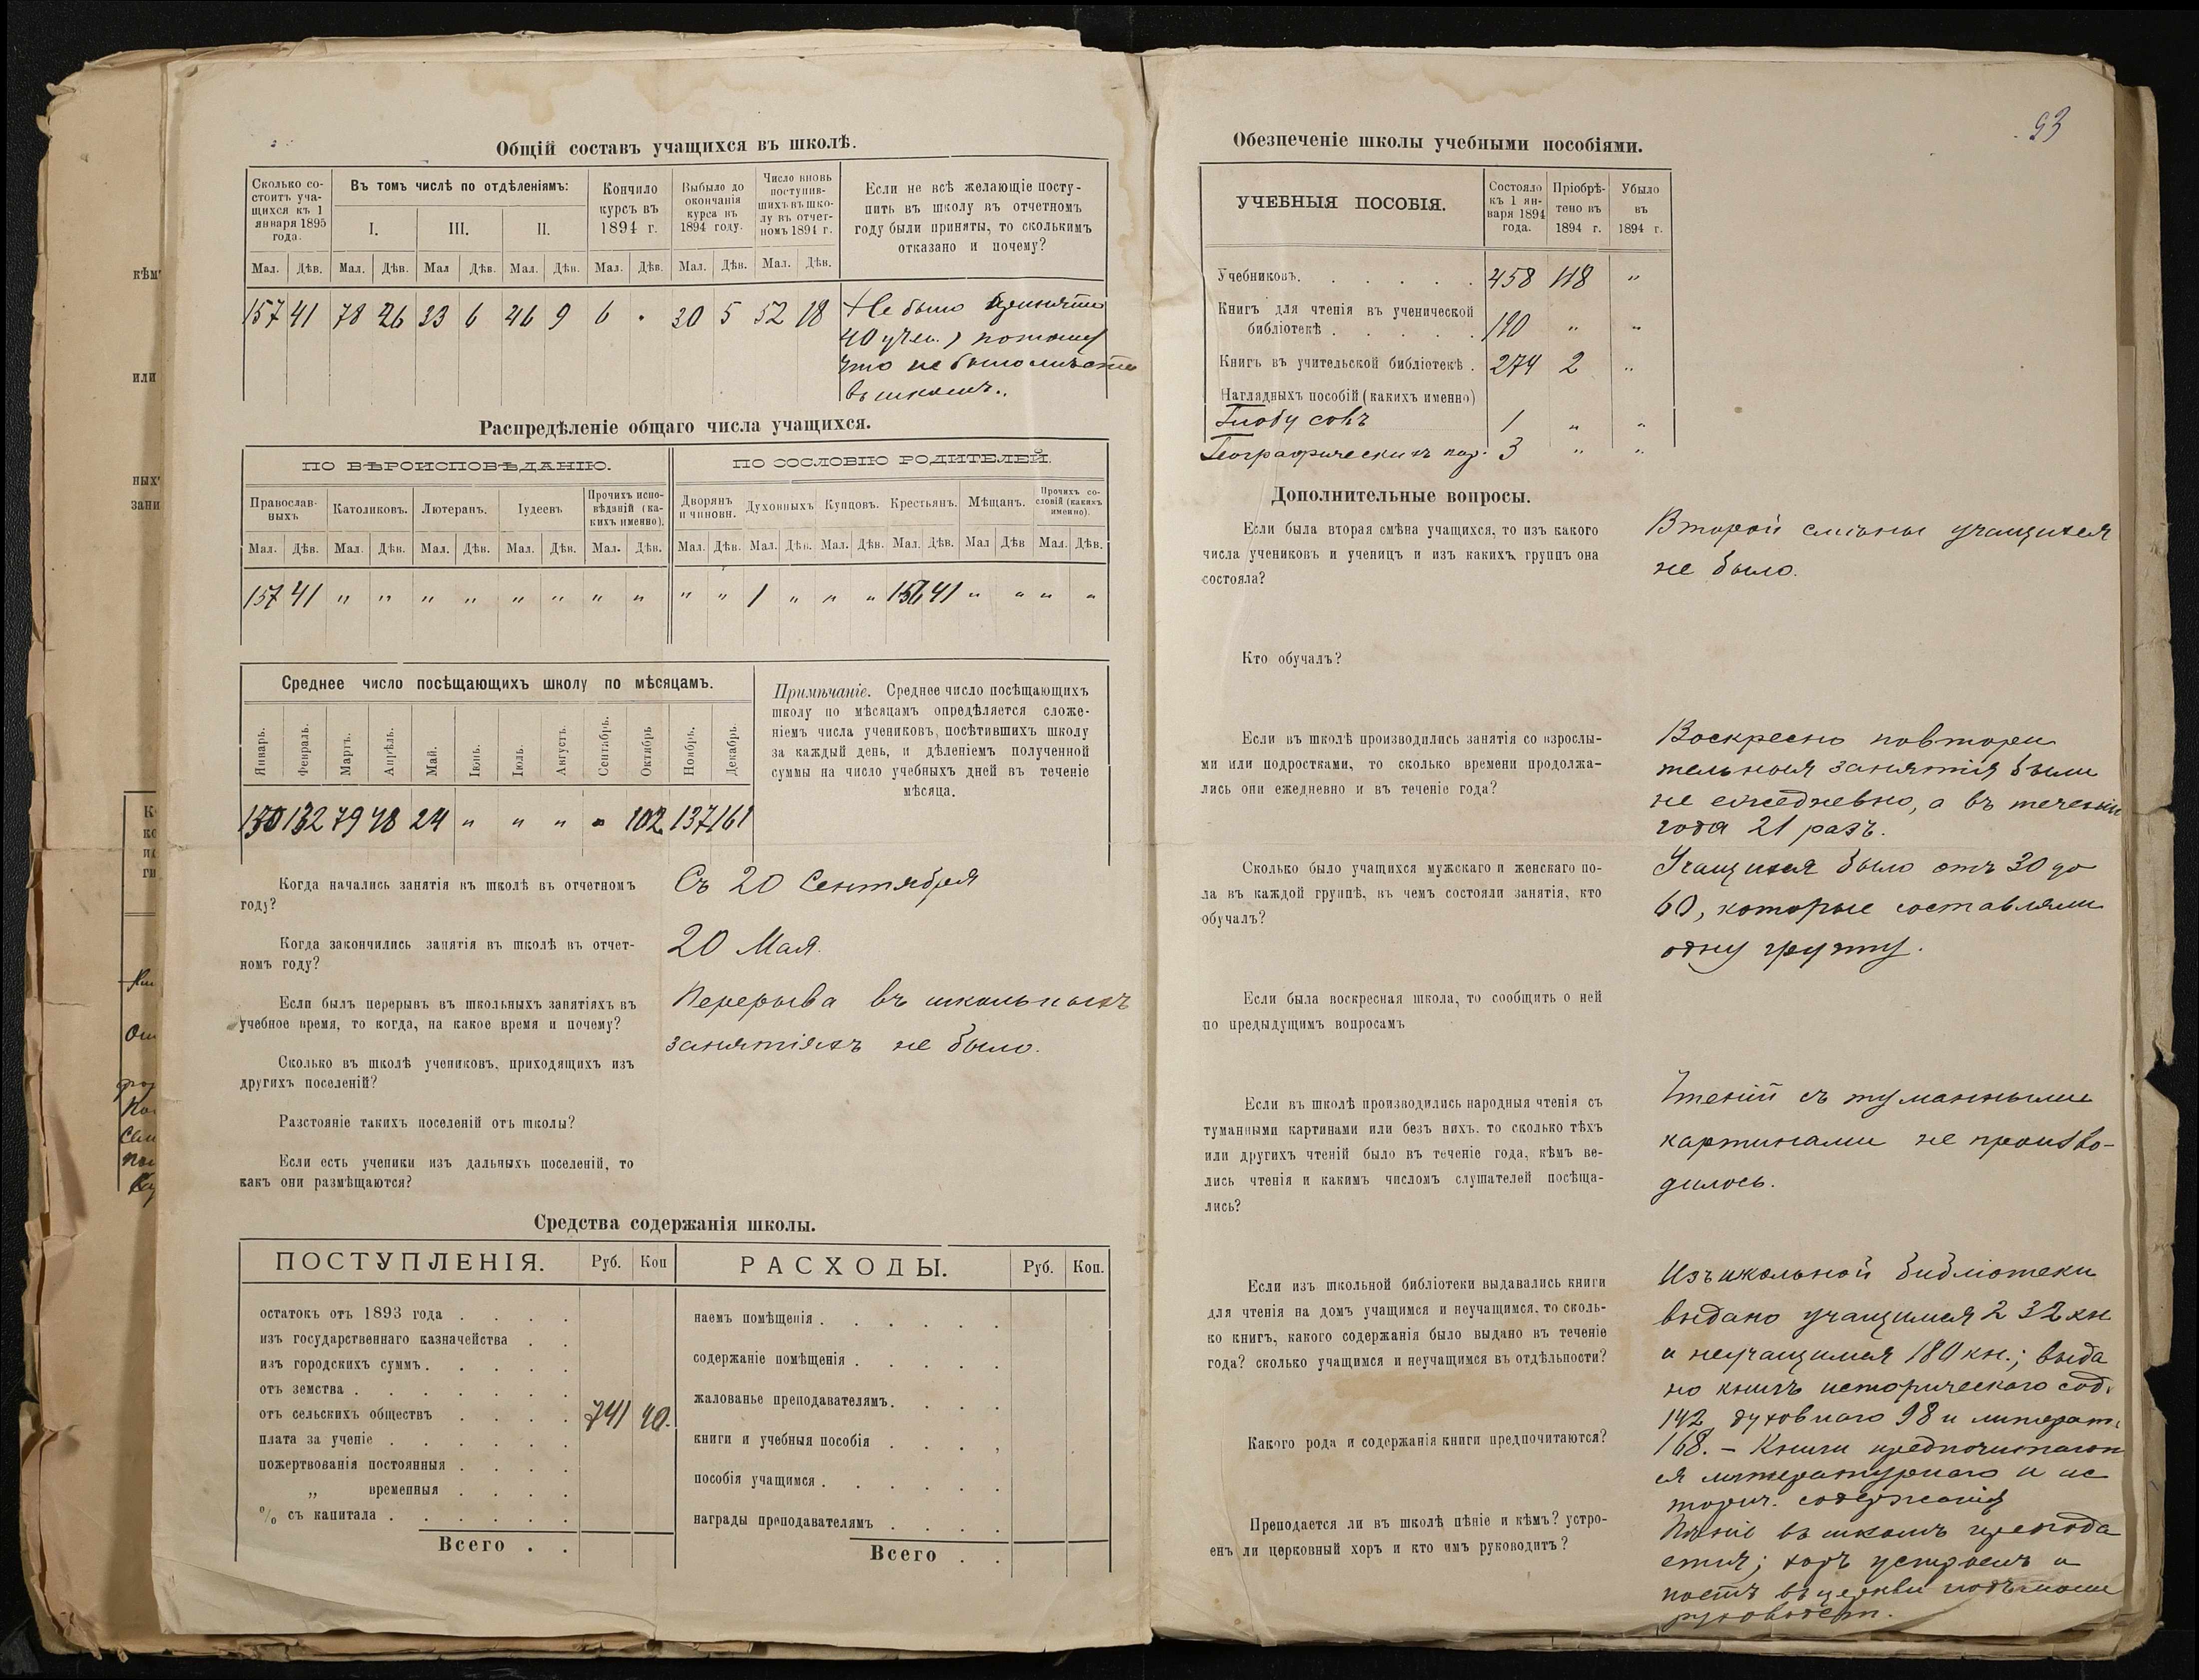 Общій составъ учащихся въ школѣ.
Сколько со-
стоитъ уча-
щихся къ 1
января 1895
года.
Въ томъ числѣ по отдѣленіямъ:
I. III. II.
Кончило
курсъ въ
1894 г.
Выбыло до
окончанія
курса въ
1894 году.
Число вновь
поступив-
шихъ въ шко-
лу въ отчет-
номъ 1894 г.
Если не всѣ желающіе посту-
пить въ школу въ отчетномъ
году были приняты, то сколькимъ
отказано и почему?
Мал. Дѣв. Мал. Дѣв. Мал Дѣв. Мал. Дѣв. Мал. Дѣв. Мал. Дѣв. Мал. Дѣв.
157 41 78 26 33 6 46 9 6 . 30 5 52 18
Не было принято
40 учен., потому
что не было мѣста
въ школѣ.
Распредѣленіе общаго числа учащихся.
ПО ВѢРОИСПОВѢДАНІЮ. ПО СОСЛОВІЮ РОДИТЕЛЕЙ.
Православ-
ныхъ
Католиковъ. Лютеранъ. Іудеевъ
Прочихъ испо-
вѣданій (ка-
кихъ именно).
Дворянъ
и чиновн.
Духовныхъ Купцовъ. Крестьянъ. Мѣщанъ.
Прочихъ со-
словій (какихъ
именно).
Мал. Дѣв. Мал. Дѣв. Мал. Дѣв. Мал. Дѣв. Мал. Дѣв. Мал. Дѣв. Мал. Дѣв. Мал. Дѣв. Мал. Дѣв. Мал Дѣв Мал. Дѣв.
157 41 " " " " " " " " " " 1 " " " 156 41 " " " "
Среднее число посѣщающихъ школу по мѣсяцамъ.
Январь. Февраль. Мартъ. Апрѣль. Май. Іюнь. Іюль. Августъ. Сентябрь. Октябрь Ноябрь. Декабрь.
130 132 79 48 24 " " " " 102 137 161
Примѣчаніе. Среднее число посѣщающихъ
школу по мѣсяцамъ опредѣляется сложе-
ніемъ числа учениковъ, посѣтившихъ школу
за каждый день, и дѣленіемъ полученной
суммы на число учебныхъ дней въ теченіе
мѣсяца.
Когда начались занятія въ школѣ въ отчетномъ
году?
Съ 20 Сентября
Когда закончились занятія въ школѣ въ отчет-
номъ году?
20 Мая.
Если былъ перерывъ въ школьныхъ занятіяхъ въ
учебное время, то когда, на какое время и почему?
Перерыва въ школьныхъ
занятіяхъ не было.
Сколько въ школѣ учениковъ, приходящихъ изъ
другихъ поселеній?
Разстояніе такихъ поселеній отъ школы?
Если есть ученики изъ дальныхъ поселеній, то
какъ они размѣщаются?
Средства содержанія школы.
ПОСТУПЛЕНІЯ. Руб. Коп РАСХОДЫ. Руб. Коп.
остатокъ отъ 1893 года . . . .
изъ государственнаго казначейства . .
изъ городскихъ суммъ . . . . .
отъ земства . . . . . . .
отъ сельскихъ обществъ . . . . 741 40.
плата за ученіе . . . . . .
пожертвованія постоянныя . . . .
„ временныя . . . .
% съ капитала . . . . . .
Всего . .
наемъ помѣщенія . . . . . .
содержаніе помѣщенія . . . . .
жалованье преподавателямъ. . . .
книги и учебныя пособія . . . .
пособія учащимся . . . . . .
награды преподавателямъ . . . .
Всего . .
93
Обезпеченіе школы учебными пособіями.
УЧЕБНЫЯ ПОСОБІЯ.
Состояло
къ 1 ян-
варя 1894
года.
Пріобрѣ-
тено въ
1894 г.
Убыло
въ
1894 г.
Учебниковъ. . . . . . 458 118 "
Книгъ для чтенія въ ученической
библіотекѣ . . . . . 190 " "
Книгъ въ учительской библіотекѣ . 274 2 "
Наглядныхъ пособій (какихъ именно)
Глобусовъ 1 " "
Географическихъ кар. 3 " "
Дополнительные вопросы.
Если была вторая смѣна учащихся, то изъ какого
числа учениковъ и ученицъ и изъ какихъ группъ она
состояла?
Второй смѣны учащихся
не было.
Кто обучалъ?
Если въ школѣ производились занятія со взрослы-
ми или подростками, то сколько времени продолжа-
лись они ежедневно и въ теченіе года?
Воскресно повтори
тельныя занятія были
не ежедневно, а въ теченіи
года 21 разъ.
Сколько было учащихся мужскаго и женскаго по-
ла въ каждой группѣ, въ чемъ состояли занятія, кто
обучалъ?
Учащихся было отъ 30 до
60, которые составляли
одну группу.
Если была воскресная школа, то сообщить о ней
по предыдущимъ вопросамъ
Если въ школѣ производились народныя чтенія съ
туманными картинами или безъ нихъ, то сколько тѣхъ
или другихъ чтеній было въ теченіе года, кѣмъ ве-
лись чтенія и какимъ числомъ слушателей посѣща-
лись?
Чтеній съ туманными
картинами не произво-
дилось.
Если изъ школьной библіотеки выдавались книги
для чтенія на домъ учащимся и неучащимся, то сколь-
ко книгъ, какого содержанія было выдано въ теченіе
года? сколько учащимся и неучащимся въ отдѣльности?
Изъ школьной библіотеки
выдано учащимся 232 кн
и неучащимся 180 кн.; выда
но книгъ историческаго сод.
142, духовнаго 98 и литерат.
168. – Книги предпочитают
ся литературнаго и ис
торич. содержанія
Какого рода и содержанія книги предпочитаются?
Преподается ли въ школѣ пѣніе и кѣмъ? устро-
енъ ли церковный хоръ и кто имъ руководитъ?
Пѣніе въ школѣ препода
ется; хоръ устроенъ и
поетъ въ церкви подъ моим
руководст.